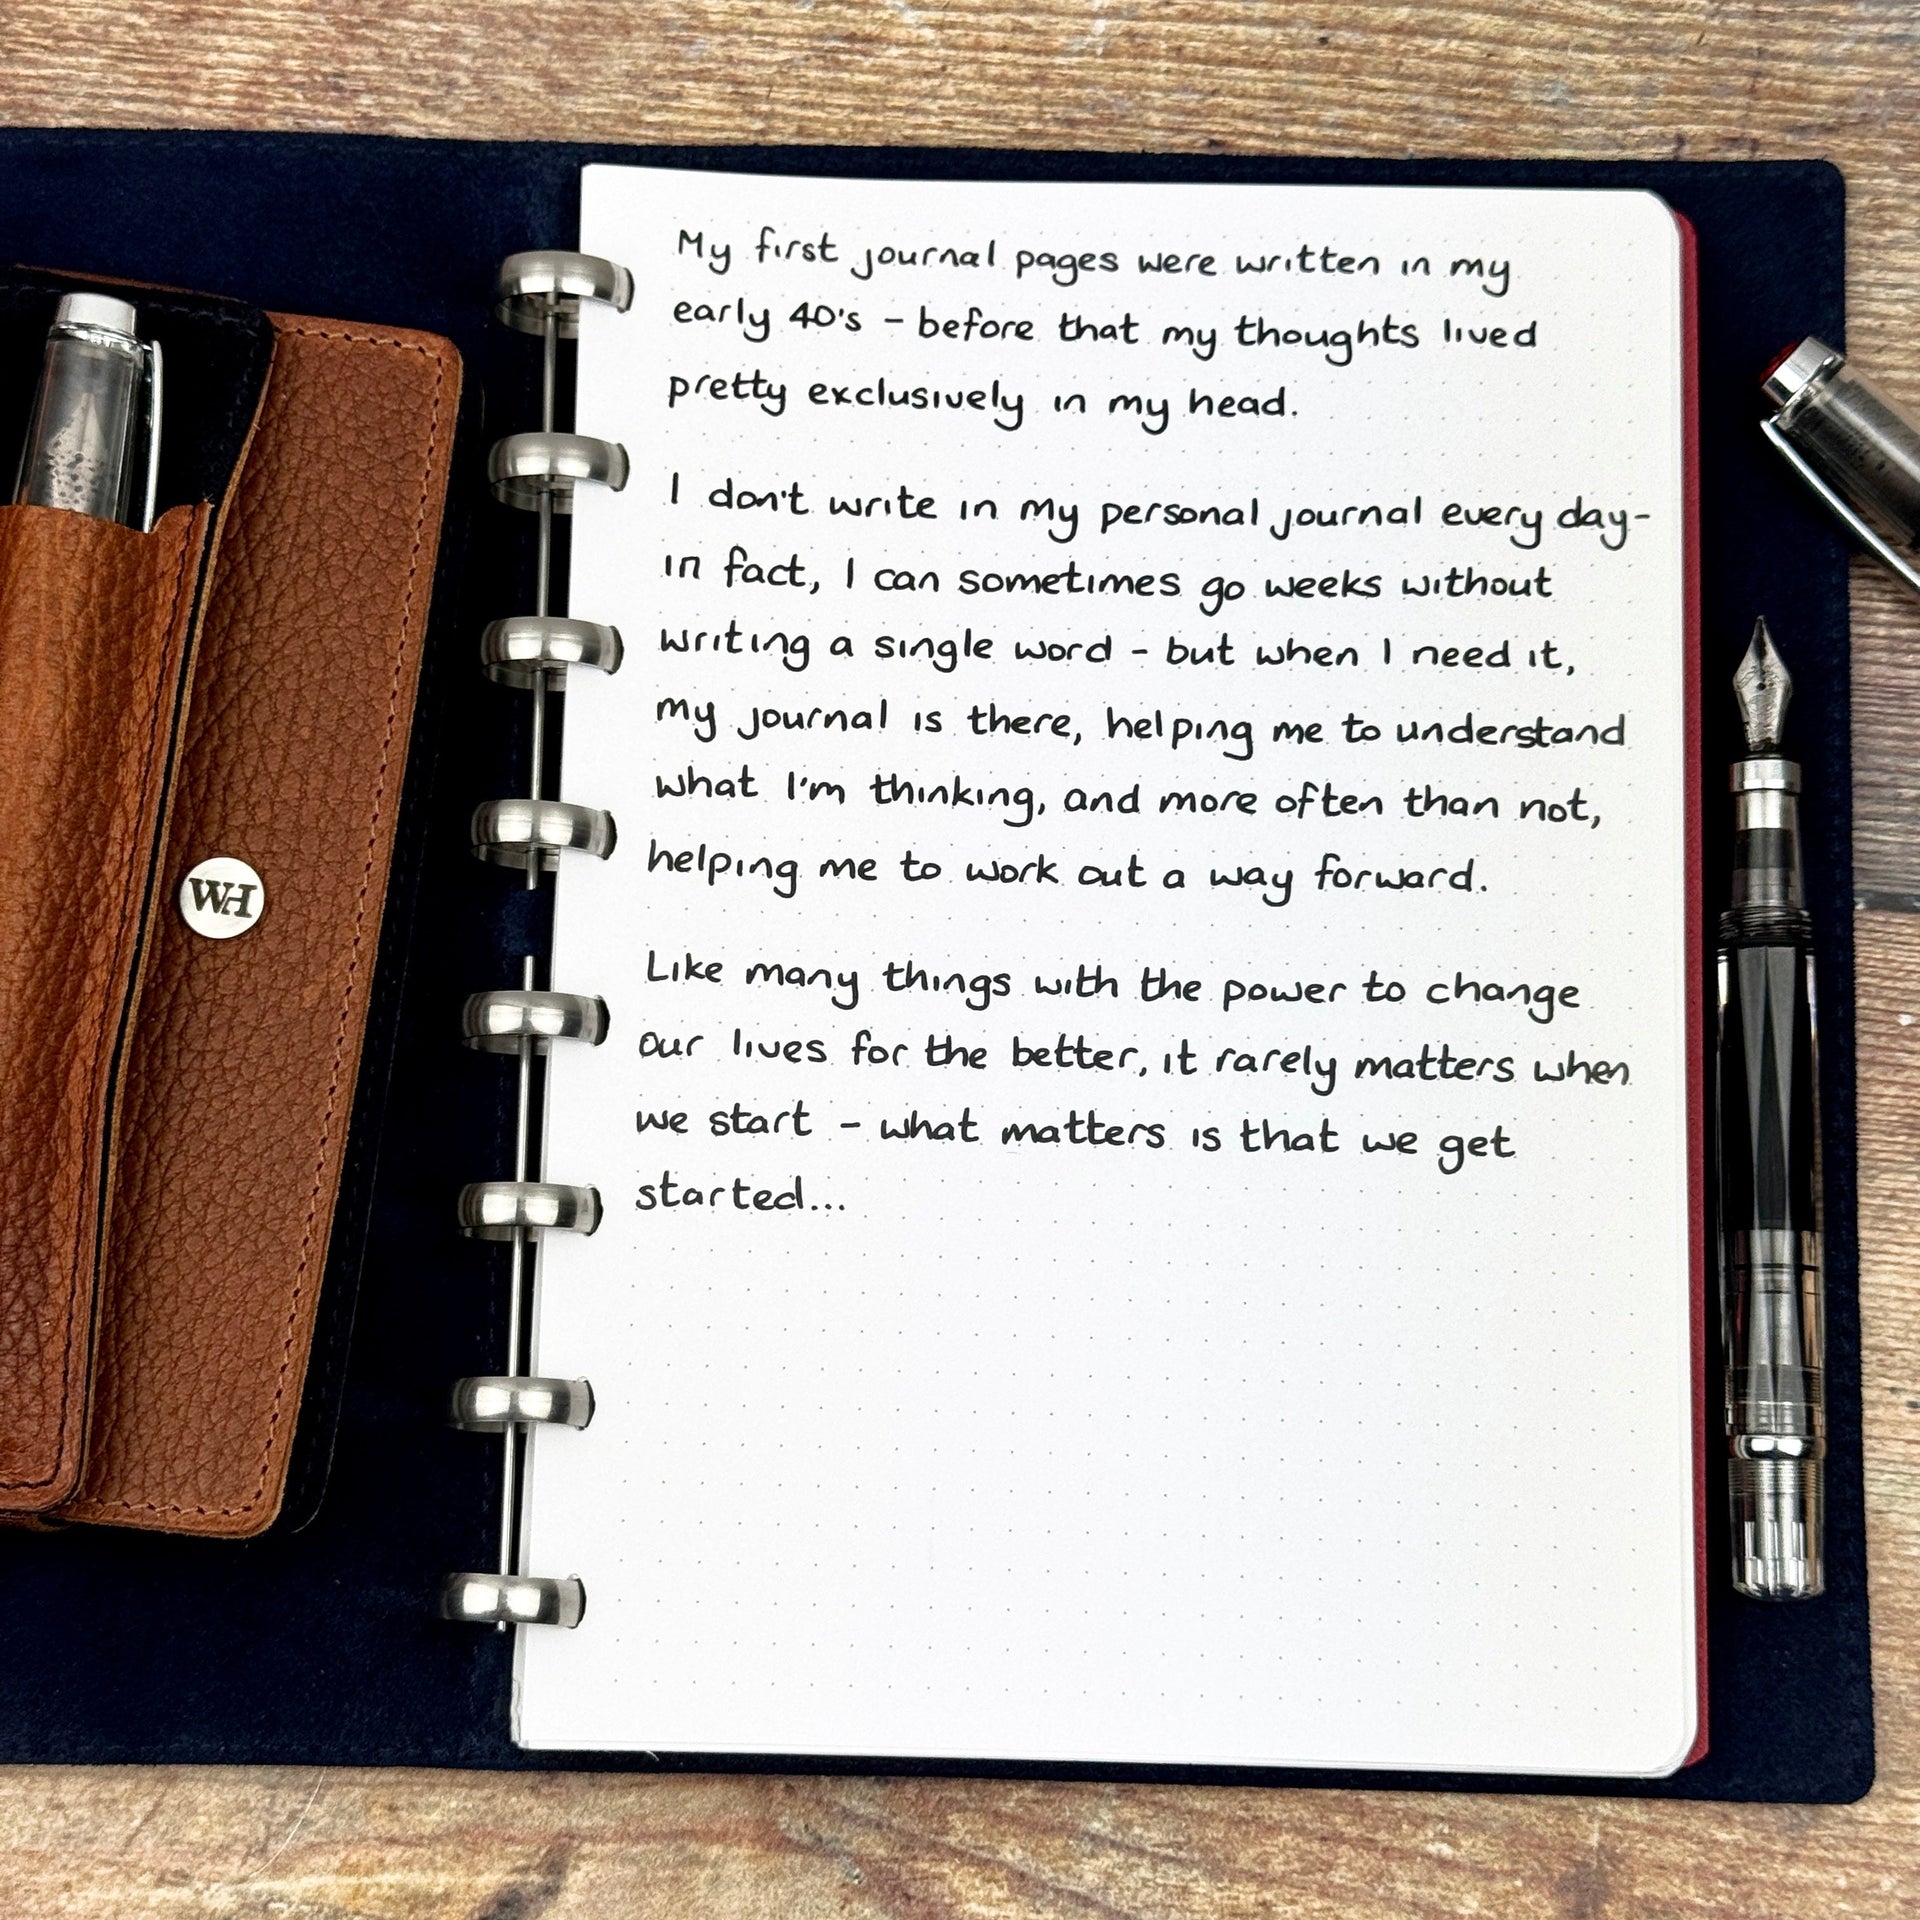 My first journal pages were written in my
early 40's - before that my thoughts lived
pretty exclusively in my head.
I don't write in my personal journal every day-
in fact, I can sometimes go weeks without
writing a single word - but when I need it,
my journal is there, helping me to understand
what I'm thinking, and more often than not,
helping me to work out a way forward.
Like many things with the power to change
our lives for the better, it rarely matters when
we start - what matters is that we get
started...
WH